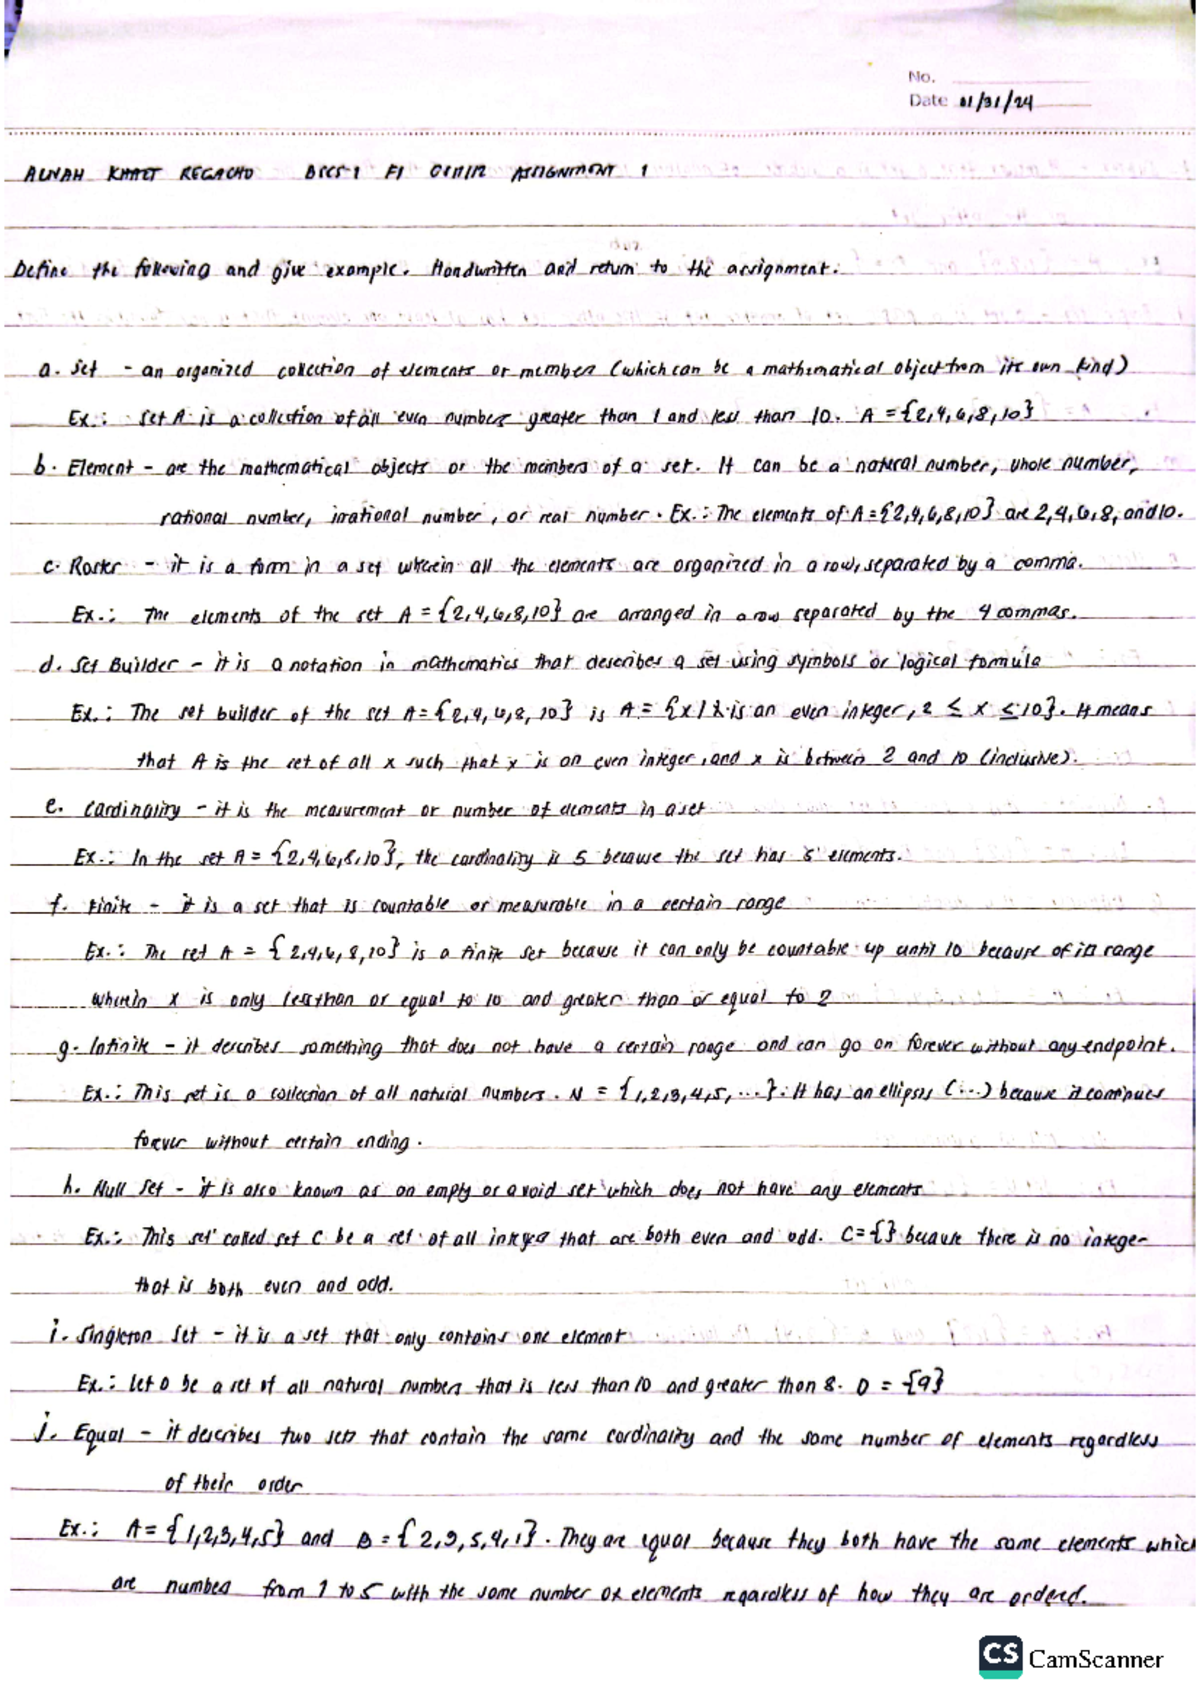 No.
Date 01/31/24
KHATE REGACHO BSCS-1 F1 ASSIGNMENT 1
Define the following and give example. Handwritten and return to the assignment.
a. Set - an organized collection of elements or members (which can be a mathematical object from its own kind)
Ex.: Set A is a collection of all even numbers greater than 1 and less than 10. A = {2,4,6,8,10}
b. Element - are the mathematical objects or the members of a set. It can be a natural number, whole number,
rational number, irrational number, or real number. Ex.: The elements of A={2,4,6,8,10} are 2,4,6,8, and 10.
c. Roster - it is a form in a set wherein all the elements are organized in a row, separated by a comma.
Ex.: The elements of the set A = {2,4,6,8,10} are arranged in a row separated by the 4 commas.
d. Set Builder - it is a notation in mathematics that describes a set using symbols or logical formula
Ex.: The set builder of the set A={2,4,6,8,10} is A = {x/x is an even integer, 2 ≤ x ≤ 10}. It means
that A is the set of all x such that x is an even integer, and x is between 2 and 10 (inclusive).
e. Cardinality - it is the measurement or number of elements in a set
Ex.: In the set A = {2,4,6,8,10}, the cardinality is 5 because the set has 5 elements.
f. Finite - it is a set that is countable or measurable in a certain range
Ex.: The set A = {2,4,6,8,10} is a finite set because it can only be countable up until 10 because of its range
wherein x is only less than or equal to 10 and greater than or equal to 2
g. Infinite - it describes something that does not have a certain range and can go on forever without any endpoint.
Ex.: This set is a collection of all natural numbers. N = {1,2,3,4,5,...}. It has an ellipsis (...) because it continues
forever without certain ending.
h. Null Set - it is also known as an empty or a void set which does not have any elements
Ex.: This set called set C be a set of all integers that are both even and odd. C={} because there is no integer
that is both even and odd.
i. Singleton Set - it is a set that only contains one element
Ex.: Let D be a set of all natural numbers that is less than 10 and greater than 8. D = {9}
j. Equal - it describes two sets that contain the same cardinality and the same number of elements regardless
of their order
Ex.: A = {1,2,3,4,5} and B = {2,3,5,4,1}. They are equal because they both have the same elements which
are numbers from 1 to 5 with the same number of elements regardless of how they are ordered.
CS CamScanner